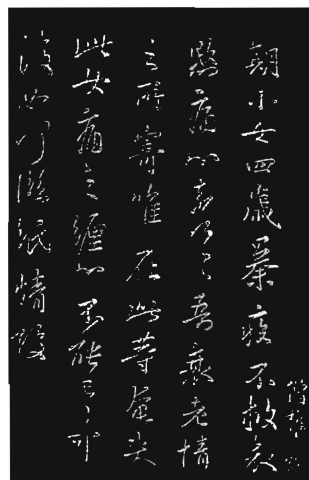 期小女四歲暴疾不救哀
愍痛心奈何奈何吾衰老情
之所寄唯在此等奄失
此女痛之纏心不能已已可
復如何臨紙情酸